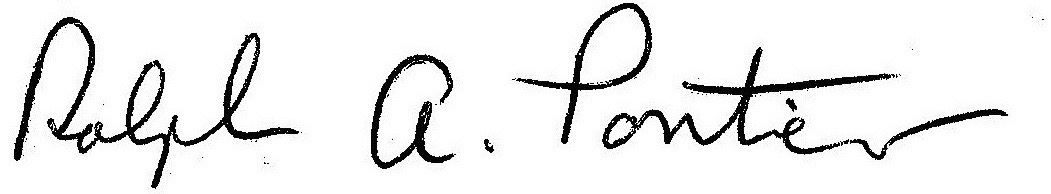 Ralph A. Pontier